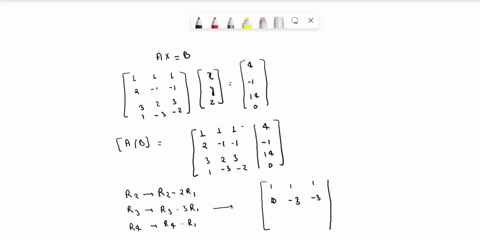 AX = B
[ 1 1 1 ; 2 -1 -1 ; 3 2 3 ; 1 -3 -2 ] [ x ; y ; z ] = [ 4 ; -1 ; 14 ; 0 ]
[A/B] = [ 1 1 1 | 4 ; 2 -1 -1 | -1 ; 3 2 3 | 14 ; 1 -3 -2 | 0 ]
R2 → R2 - 2R1
R3 → R3 - 3R1 →
R4 → R4 - R1
[ 1 1 1 ; 0 -3 -3